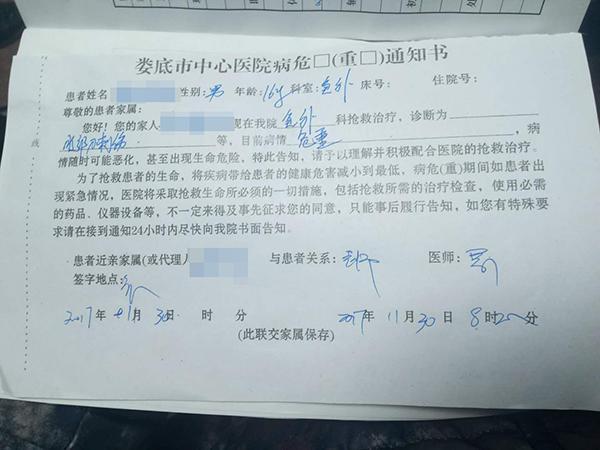 娄底市中心医院病危□(重□)通知书
患者姓名 性别:男 年龄:16岁 科室:急外 床号: 住院号:
尊敬的患者家属:
您好!您的家人 现在我院 急外 科抢救治疗,诊断为
等,目前病情 危重 ,病
情随时可能恶化,甚至出现生命危险,特此告知,请予以理解并积极配合医院的抢救治疗。
为了抢救患者的生命,将疾病带给患者的健康危害减小到最低,病危(重)期间如患者出
现紧急情况,医院将采取抢救生命所必须的一切措施,包括抢救所需的治疗检查,使用必需
的药品、仪器设备等,不一定来得及事先征求您的同意,只能事后履行告知,如您有特殊要
求请在接到通知24小时内尽快向我院书面告知。
患者近亲家属(或代理人 与患者关系: 医师:
签字地点:
2017年 11月 30日 时 分 2017年 11月 30日 8时20分
(此联交家属保存)